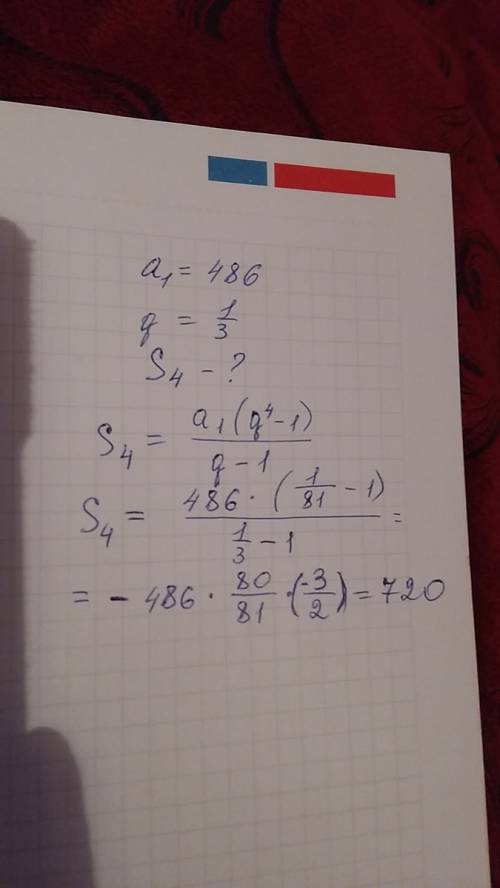 a₁ = 486
q = 1/3
S₄ - ?
S₄ = a₁(q⁴-1)/q-1
S₄ = 486·(1/81 - 1)/1/3 - 1 =
= - 486 · 80/81 · (-3/2) = 720